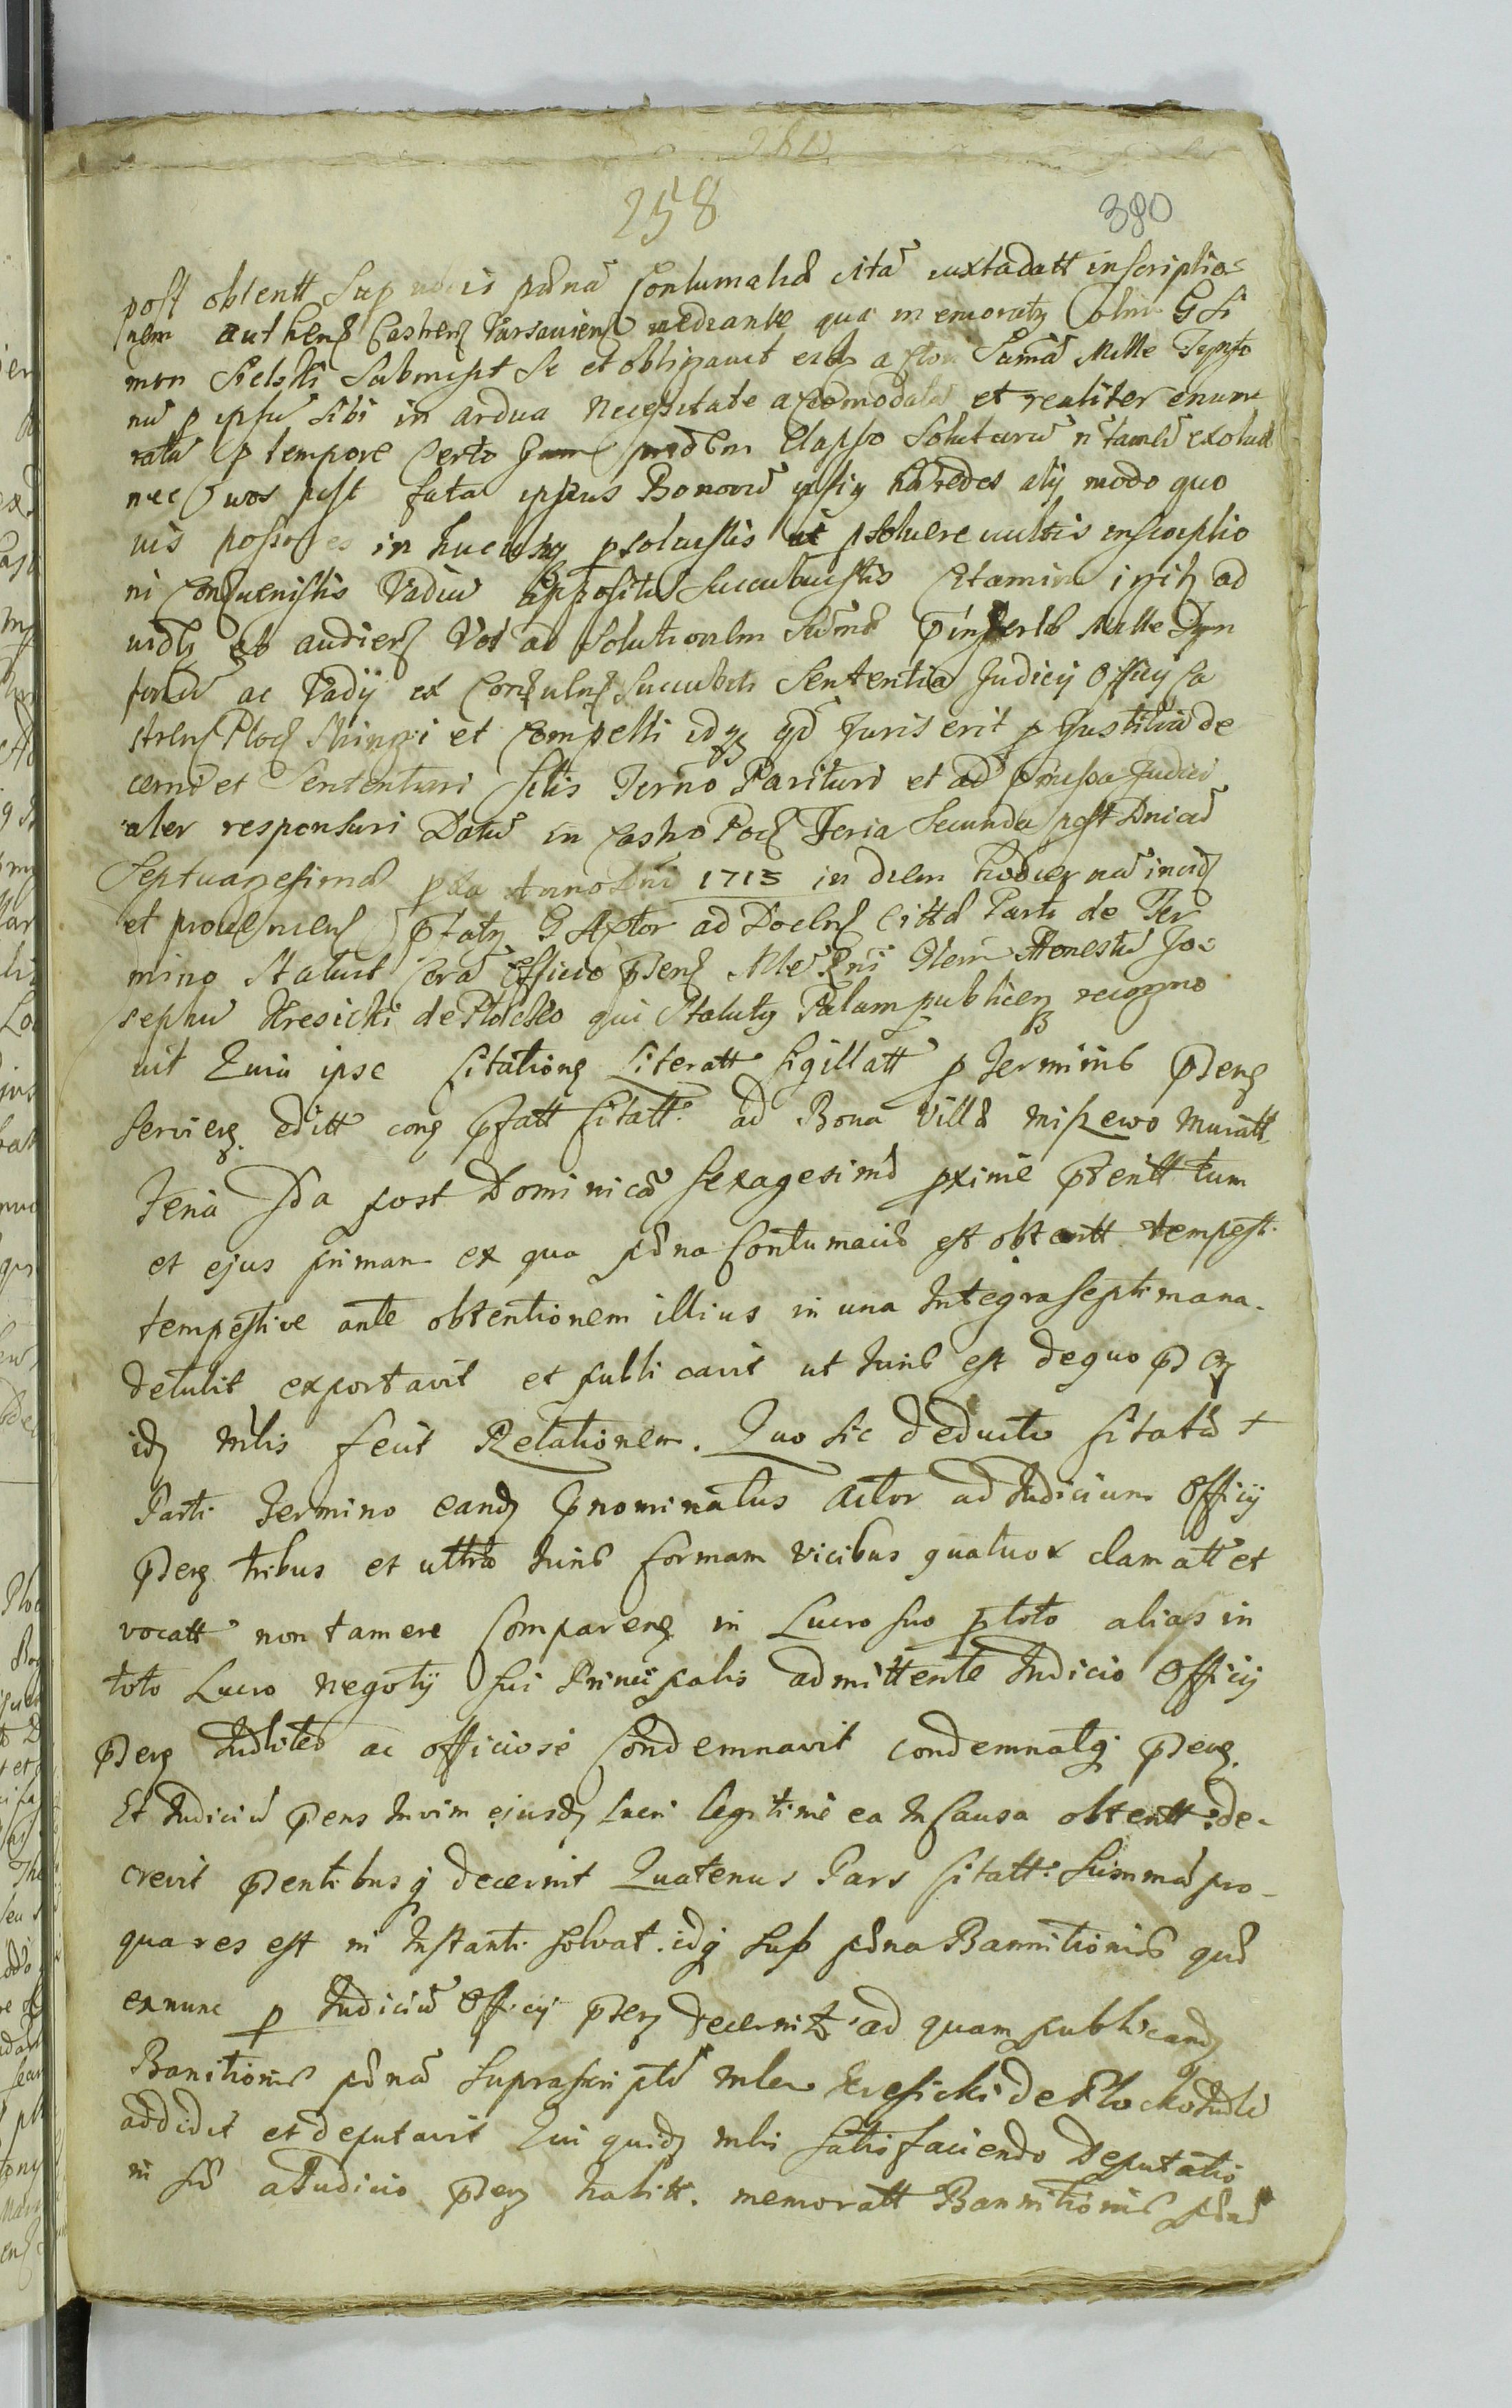 258
380
post obtentt Sup pœnã Contumaciæ citã iuxta datt inscriptio
nem authen Castren Varsavien mediante qua memoratq olim G Si
mon Sielski Submisit Se et obligavit eid actori Sumã Mille Tympfo
nũ p ipsũ sibi in ardua necessitate accomodatã et realiter enume
ratã p tempore Certo Jam pridem Elapso Soluturũ ñ tamen exolvit
nec vos post fata ipsius Bonorũ ipsiq hæredes alij modo quo
vis possores in hucusq psoluistis ut psolvere vultis inscriptio
ni Contravenistis Vadiũ appositũ Succubuistis Citamini igitr ad
vidq et audien Vos ad Solutionem Sumæ Mille Tym
forũ ac Vadij ex succubiti Sententia Judicij Officij Ca
stren Ploc Stringi et Compelli idq qd Juris erit p Justitia de
cerni et Sententiari sitis Terno Parituri et ad præmissa Judici
aler responsuri Datũ in Castro Ploc Feria Secunda post Dnicã
Septuagesimæ pxa Anno Dni 1715 in diem hodiernã incid
et provenien pfatq G Actor ad Docen Cittã Parti de Ter
mino Statuit Corã Officio pden Mle Rni Glem Honestũ Jo=
sephũ Kresicki de Plocko qui Statutq Palam publiceq recogno
vit Quia ipse Citationẽ Literatt Sigillatt p Terminũ pdenq
servienq editt conq pfatt Citatt ad Bona Villæ Miszewo Muratt
Feria 2da post Dominicã Sexagesimæ pxime pderitt tum
et ejus primam ex qua pœna Contumaciæ est obtentt tempesti
tempestive ante obtentionem illius in una Integra septimana.
detulit exportavit et publicavit ut Juris est de quo pdenq
idq Mlis fecit Relationem. Quo sic deducto Citatã +
Parti Termino eandq pnominatus Actor ad Judicium Officij
pdenq tribus et ultra Juris formam vicibus quatuor clamatt et
vocatt non tamen Comparenq in Lucro suo p toto alias in
toto Lucro negotij sui Principalis admittente Judicio Officij
pdenq Judlitẽ ac officiose Condemnavit condemnatq pdenq.
Et Judiciũ pdens Invim ejusdq lucri legitime ea In Causa obtentt de-
crevit pdentibusq decernit Quatenus Pars Citatt Summã pro-
qua res est in Instanti solvat. idq sup pœna Bannitionis quã
exnunc p Judiciũ Officij pdenq decernit ad quam publicandq
Banitionis pœnã suprascriptũ mlem Kresicki de Plocko Judlr
addidit et deputavit Qui quidq mlis satisfaciendo Deputatio
ni suæ a Judicio pdenq habitt. memoratt Bannitionis pœnã